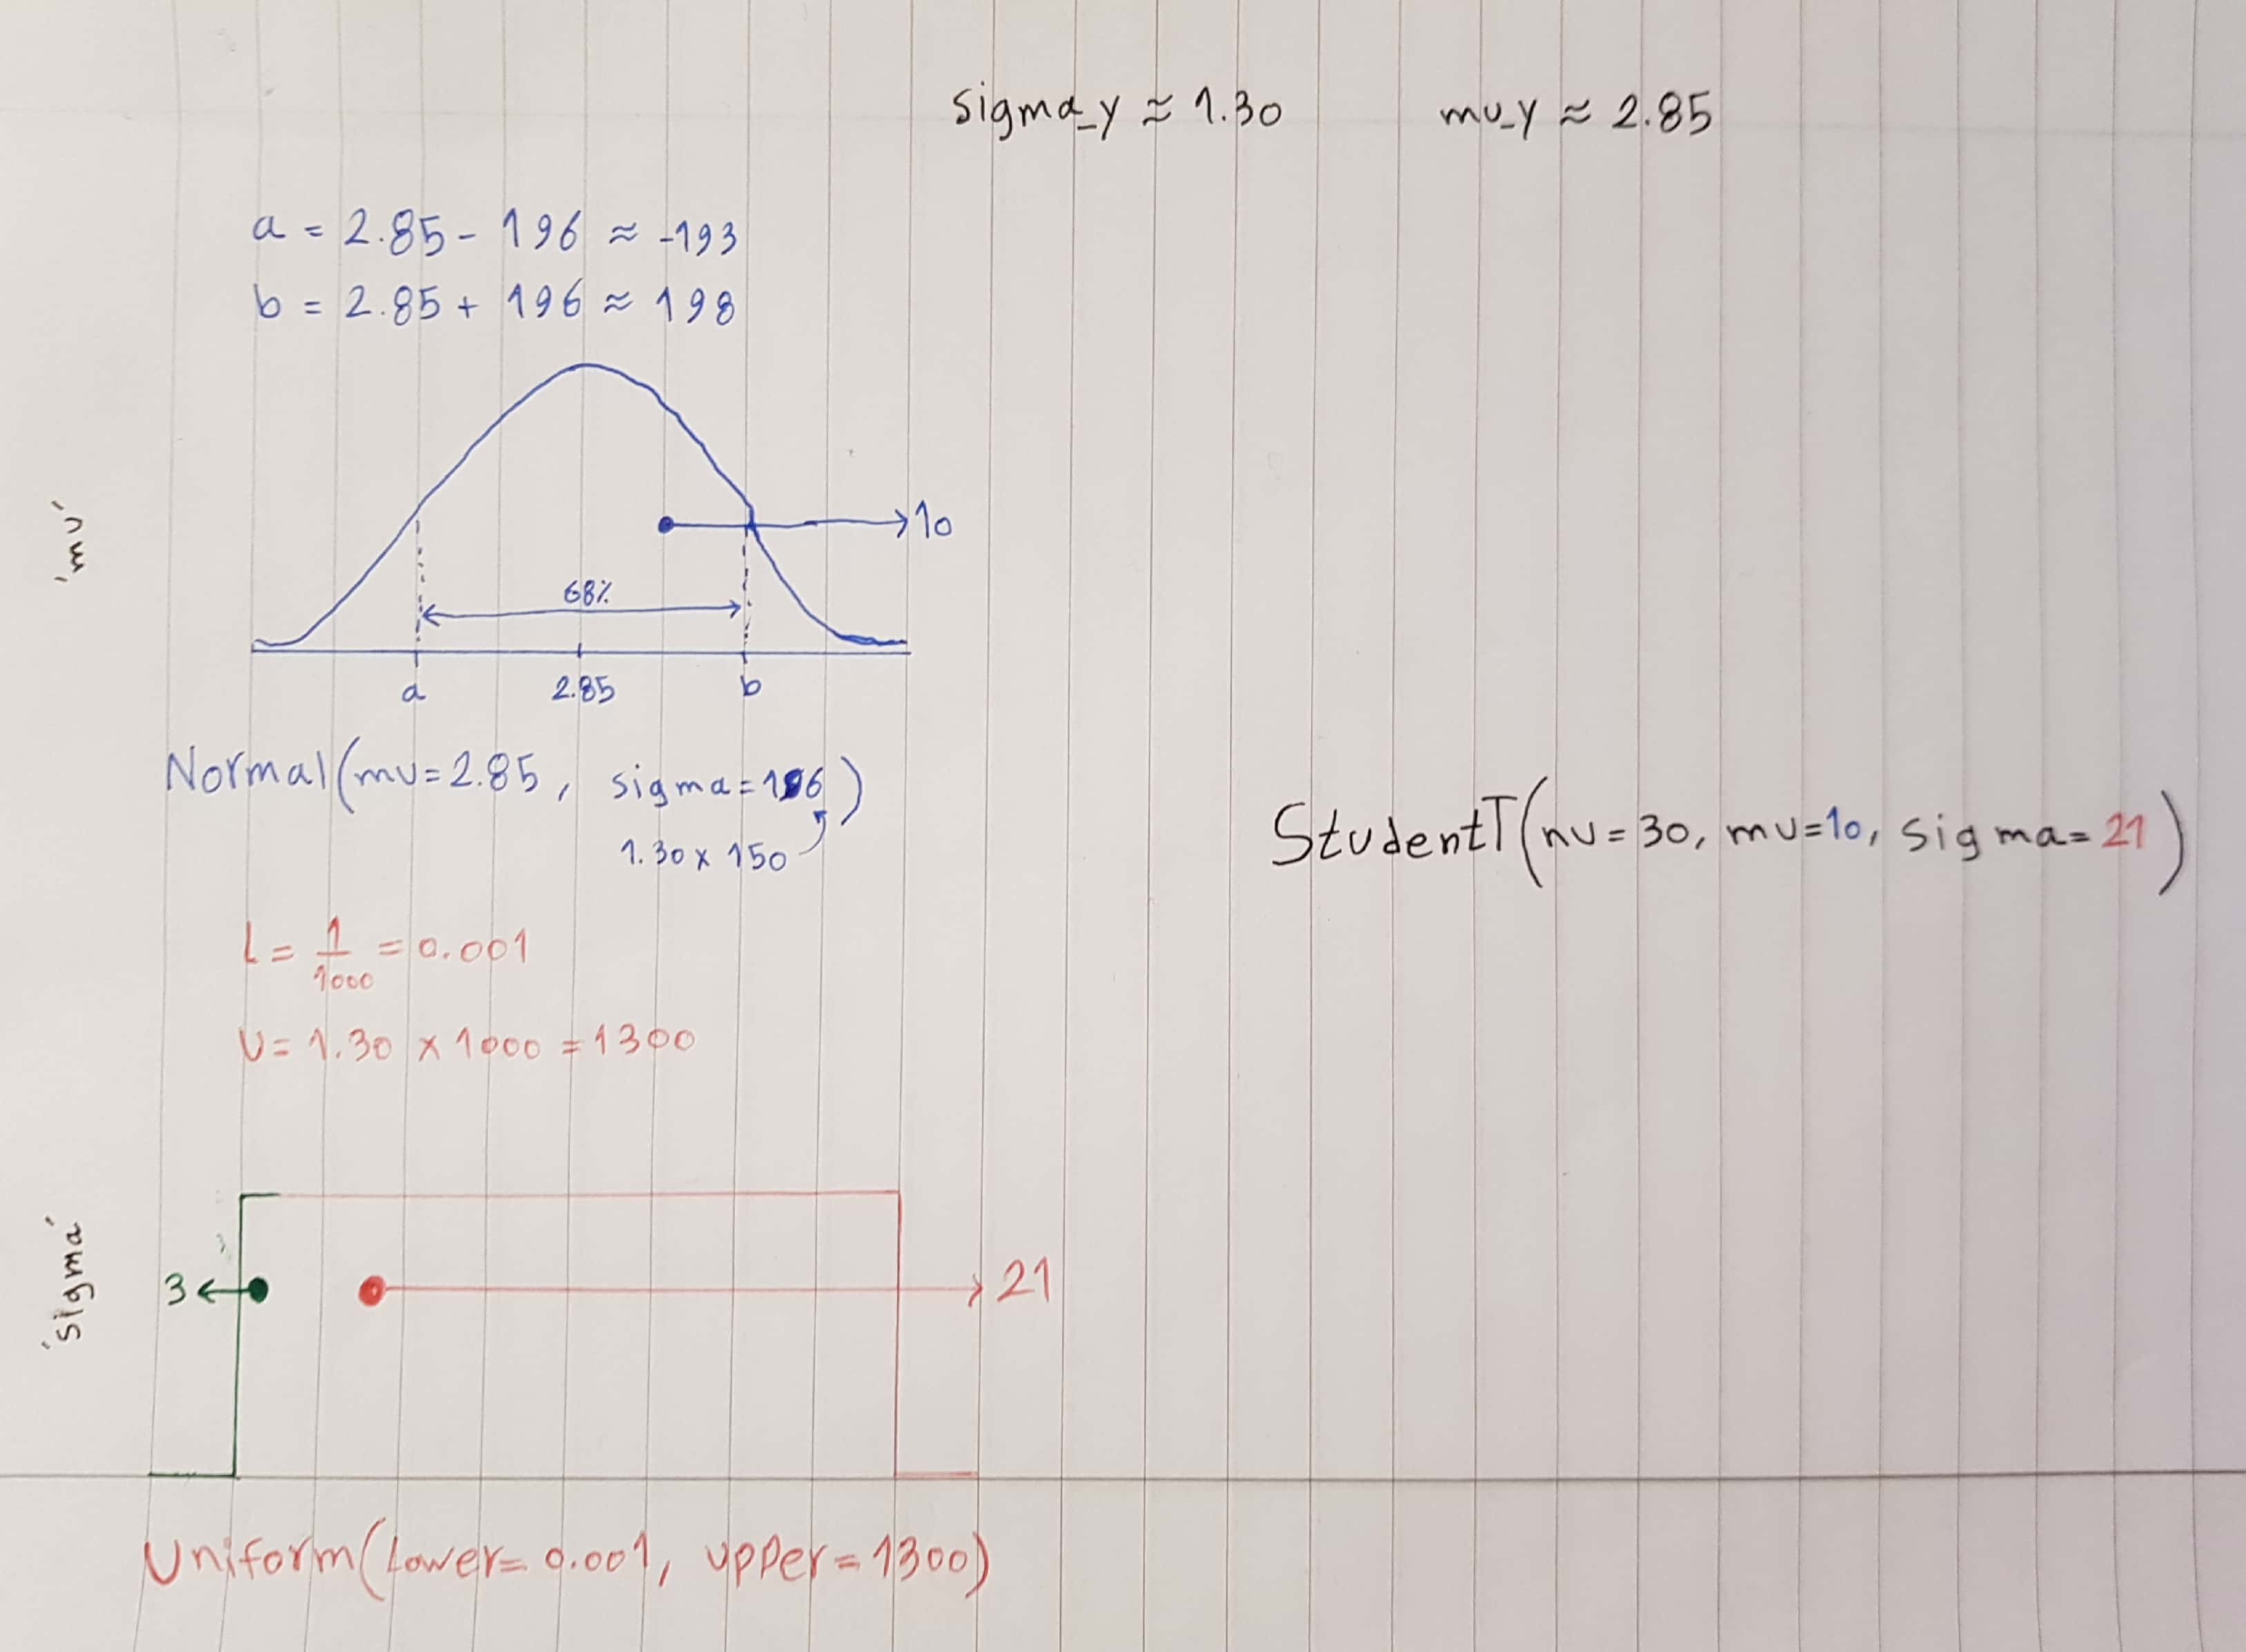 sigma_y ≈ 1.30 mu_y ≈ 2.85
a = 2.85 - 196 ≈ -193
b = 2.85 + 196 ≈ 198
'mu'
10
68%
a 2.85 b
Normal(mu=2.85, sigma=196)
1.30 x 150
StudentT(nu=30, mu=10, sigma=21)
l = 1/1000 = 0.001
U = 1.30 x 1000 = 1300
'sigma'
3 21
Uniform(lower=0.001, upper=1300)